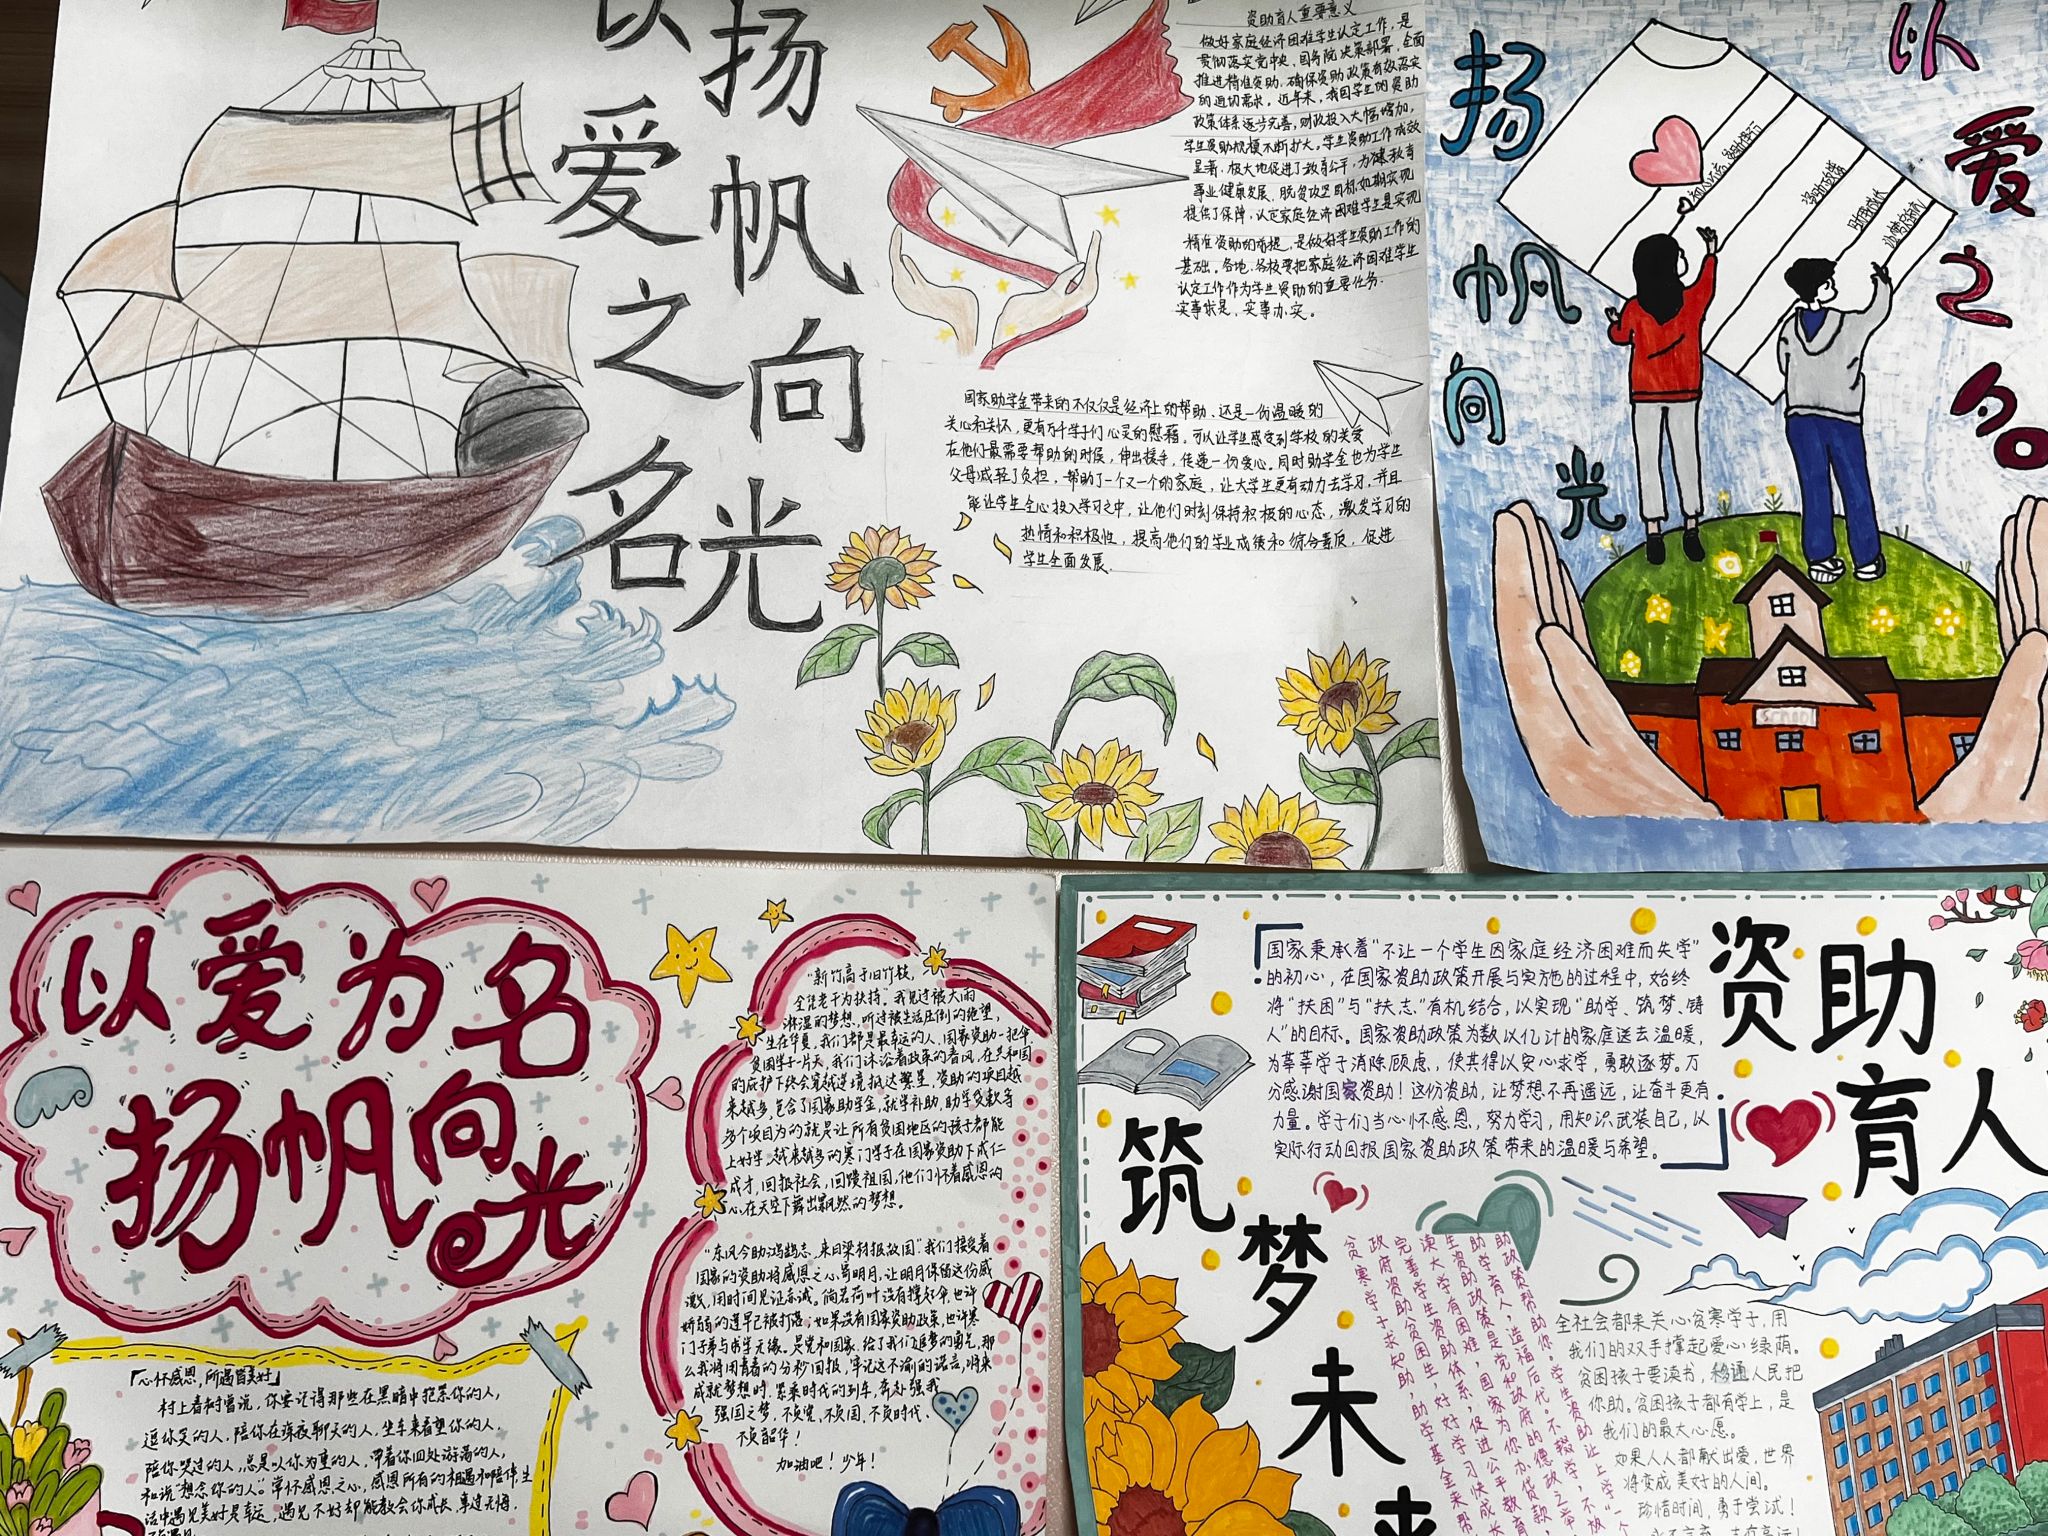 以爱之名
扬帆向光
资助育人重要意义
做好家庭经济困难学生认定工作，是
贯彻落实党中央、国务院决策部署，全面
推进精准资助，确保资助政策有效落实
的迫切需求。近年来，我国学生的资助
政策体系逐步完善，财政投入大幅增加，
学生资助规模不断扩大。学生资助工作成效
显著，极大地促进了教育公平，为健教育
事业健康发展，脱贫攻坚目标如期实现
提供了保障，认定家庭经济困难学生是实现
精准资助的前提，是做好学生资助工作的
基础。各地、各校要把家庭经济困难学生
认定工作作为学生资助的重要任务。
实事求是，实事办实。
国家助学金带来的不仅仅是经济上的帮助、还是一份温暖的
关心和关怀，更有万千学子们心灵的慰藉，可以让学生感受到学校的关爱
在他们最需要帮助的时侯，伸出援手，传递一份爱心。同时助学金也为学生
父母减轻了负担，帮助了一个又一个的家庭，让大学生更有动力去学习，并且
能让学生全心投入学习之中，让他们时刻保持积极的心态，激发学习的
热情和积极性，提高他们的学业成绩和综合素质，促进
学生全面发展。
扬帆向光
以爱之名
资助政策
school
以爱为名
扬帆向光
“新竹高于旧竹枝，
全凭老干为扶持。我见过被大雨
淋湿的梦想，听过被生活压倒的绝望，
生在华夏，我们都是最幸运的人，国家资助一把伞，
贫困学子一片天，我们沐浴着政策的春风，在共和国
的庇护下终会穿越逆境抵达繁星，资助的项目越
来越多，包含了国家助学金，就学补助，助学贷款等
多个项目为的就是让所有贫困地区的孩子都能
上好学，越来越多的寒门学子在国家资助下成仁
成才，回报社会，回馈祖国，他们怀着感恩的
心，在天空下舞出飘然的梦想。
“东风今助鸿鹄志，来日梁材报故国”我们接受着
国家的资助将感恩之心寄明月，让明月保留这份感
激，用时间见证赤诚。倘若荷叶没有撑起伞，也许
娇弱的莲早已被打落；如果没有国家资助政策，也许寒
门子弟与求学无缘。是党和国家，给了我们追梦的勇气，那
么我将用青春的分秒回报，牢记这不渝的诺言，将来
成就梦想时，乘时代的列车，奔赴强我
强国之梦，不负党，不负国，不负时代、
不负韶华！
加油吧！少年！
「心怀感恩，所遇皆美好」
村上春树曾说，你要记得那些在黑暗中抱紧你的人，
逗你笑的人，陪你在深夜聊天的人，坐车来看望你的人，
陪你哭过的人，总是以你为重的人，带着你四处游荡的人，
和说“想念你的人。”常怀感恩之心，感恩所有的相遇和陪伴，生
活中遇见美好是幸运，遇见不好却能教会你成长，
资助育人
筑梦未来
国家秉承着“不让一个学生因家庭经济困难而失学”
的初心，在国家资助政策开展与实施的过程中，始终
将“扶困”与“扶志”有机结合，以实现“助学、筑梦、铸
人”的目标。国家资助政策为数以亿计的家庭送去温暖，
为莘莘学子消除顾虑，使其得以安心求学，勇敢逐梦。万
分感谢国家资助！这份资助，让梦想不再遥远，让奋斗更有
力量。学子们当心怀感恩，努力学习，用知识武装自己，以
实际行动回报国家资助政策带来的温暖与希望。
助政策帮助你。学生资助让上学“一个
助学育人，造福后代。不辍学，不
生资助政策是党和政府的德政之举
读大学有困难，国家为你办贷款，
完善学生资助体系，促进公平教育
政府资助贫困生，好好学习快成长
贫寒学子求知助，助学基金来帮
全社会都来关心贫寒学子，用
我们的双手撑起爱心绿荫。
贫困孩子要读书，移通人民把
你助。贫困孩子都有学上，是
我们的最大心愿。
如果人人都献出爱，世界
将变成美好的人间。
珍惜时间，勇于尝试！